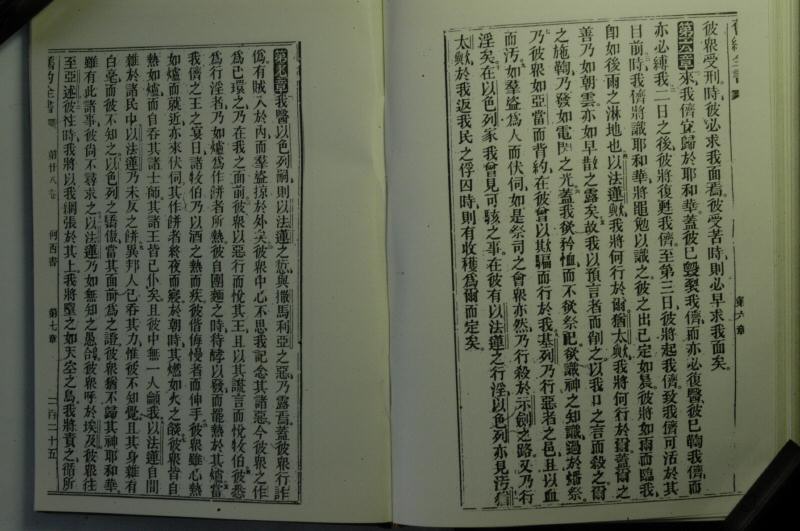 彼衆受刑時彼必求我面焉彼受苦時則必早求我面矣
第六章來我儕宜歸於耶和華蓋彼已毀裂我儕而亦必復醫彼已鞫我儕而
亦必縛我二日之後彼將復甦我儕至第三日彼將起我儕致我儕可活於其
目前時我儕將識耶和華將黽勉以識之彼之出已定如晨彼將如雨而臨我
即如後雨之淋地也以法蓮歟我將何行於爾猶太歟我將何行於爾蓋爾之
善乃如朝雲亦如早散之露矣故我以預言者而削之以我口之言而殺之爾
之施鞫乃發如電閃之光蓋我欲矜恤而不欲祭祀欲識神之知識過於燔祭
乃彼衆如亞當而背約在彼曾以欺騙而行於我基列乃行惡者之邑且以血
而污如羣盜爲人而伏伺如是祭司之會衆亦然乃行殺於示劍之路又乃行
淫矣在以色列家我曾見可駭之事在彼有以法蓮之行淫以色列亦見污
太歟於我返我民之俘囚時則有收穫爲爾而定矣
第六章
第七章我醫以色列嗣則以法蓮之愆與撒馬利亞之惡乃露焉蓋彼衆行詐
爲有賊入於內而羣盜掠於外矣彼衆中心不思我記念其諸惡今彼衆之作
爲已環之乃在我之面前彼衆以惡行而悅其王且以其謊言而悅牧伯彼悉
爲行淫者乃如爐爲作餅者所熱彼自團麵之時待酵以發而罷熱於其爐當
我儕之王之宴日諸牧伯乃以酒之熱而疾彼偕侮慢者而伸手彼衆雖心熱
如爐而就近亦來伏伺其作餅者終夜而寢於朝時其燃如火之燄彼衆皆自
熱如爐而自吞其諸士師其諸王皆已仆矣且彼中無一人籲我以法蓮自間
雜於諸民中以法蓮乃未反之餅異邦人已吞其力惟彼不知覺且其身雜有
白毫而彼不知之以色列之驕傲當其面前爲之證彼衆猶不歸其神耶和華
雖有此諸事彼尚不尋求之以法蓮乃如無知之愚鴿彼衆呼於埃及彼衆往
至亞述彼往時我將以我網張於其上我將墮之如天空之鳥我將責之循所
舊約全書 第廿八卷 何西書 第七章 二百二十五